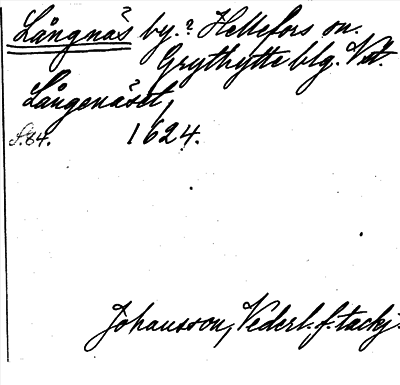 Långnäs by.? Hellefors sn.
Grythytte blg. Vstm.
Långenäset,
S. 84. 1624.
Johansson, Vederl. f. tackj.